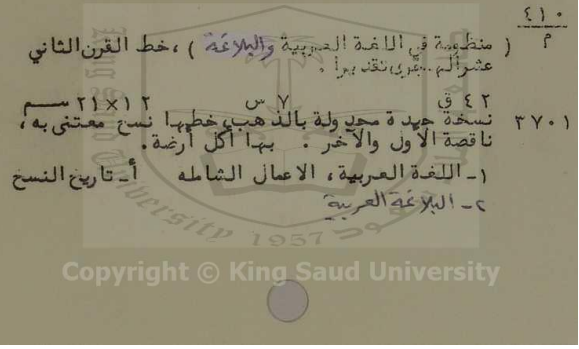 ٤١٠
م
( منظومة في اللغة العربية والبلاغة ) ، خط القرن الثاني
عشر الهجري تقديرا .
٤٢ ق ٧ س ٢١×١٢ سم
٣٧٠١ نسخة جيدة مجدولة بالذهب، خطها نسخ معتنى به ،
ناقصة الأول والآخر . بها أكل أرضة .
١- اللغة العربية ، الاعمال الشامله أ- تاريخ النسخ
٢- البلاغة العربية
University
1957
Copyright © King Saud University